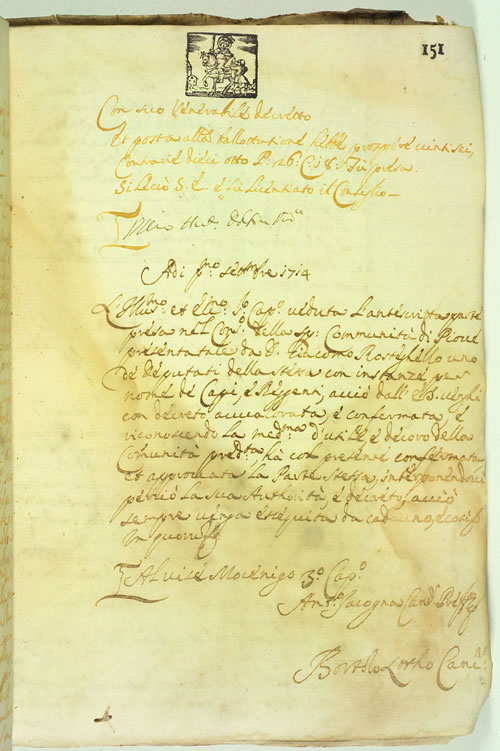 151
Con suo Venerabile decreto
Et posta alla ballottatione hebbe prospere vinti sei,
Contrarie dieci otto P. 26: C: 18: fù presa.
Si levò S. E. e fù licentiato il Conseglio
Adi p.mo settembre 1714
L'Ill.mo et Ecc.mo S.r Cap.o veduta l'antescritta parte
presa nel Cons.o della sp: Communità di Piove
presentatale da D. Giacomo Rostichello uno
de deputati della stessa con instanza per
nome de Capi, e Reggenti, acciò dall' E.S. venghi
con decreto avvalorata, e confermata, e
riconoscendo la med.ma d'utile, e decoro della
Comunità pred.ta hà con presente confermata
et approvata la Parte stessa, interponendovi
perciò la sua Authorità, e decreto, acciò
sempre venga esseguita da cadauno, e così
In quorum
Alvise Mocenigo 3.o Cap.o
Ant.o Canc.
Bortolo Canc.